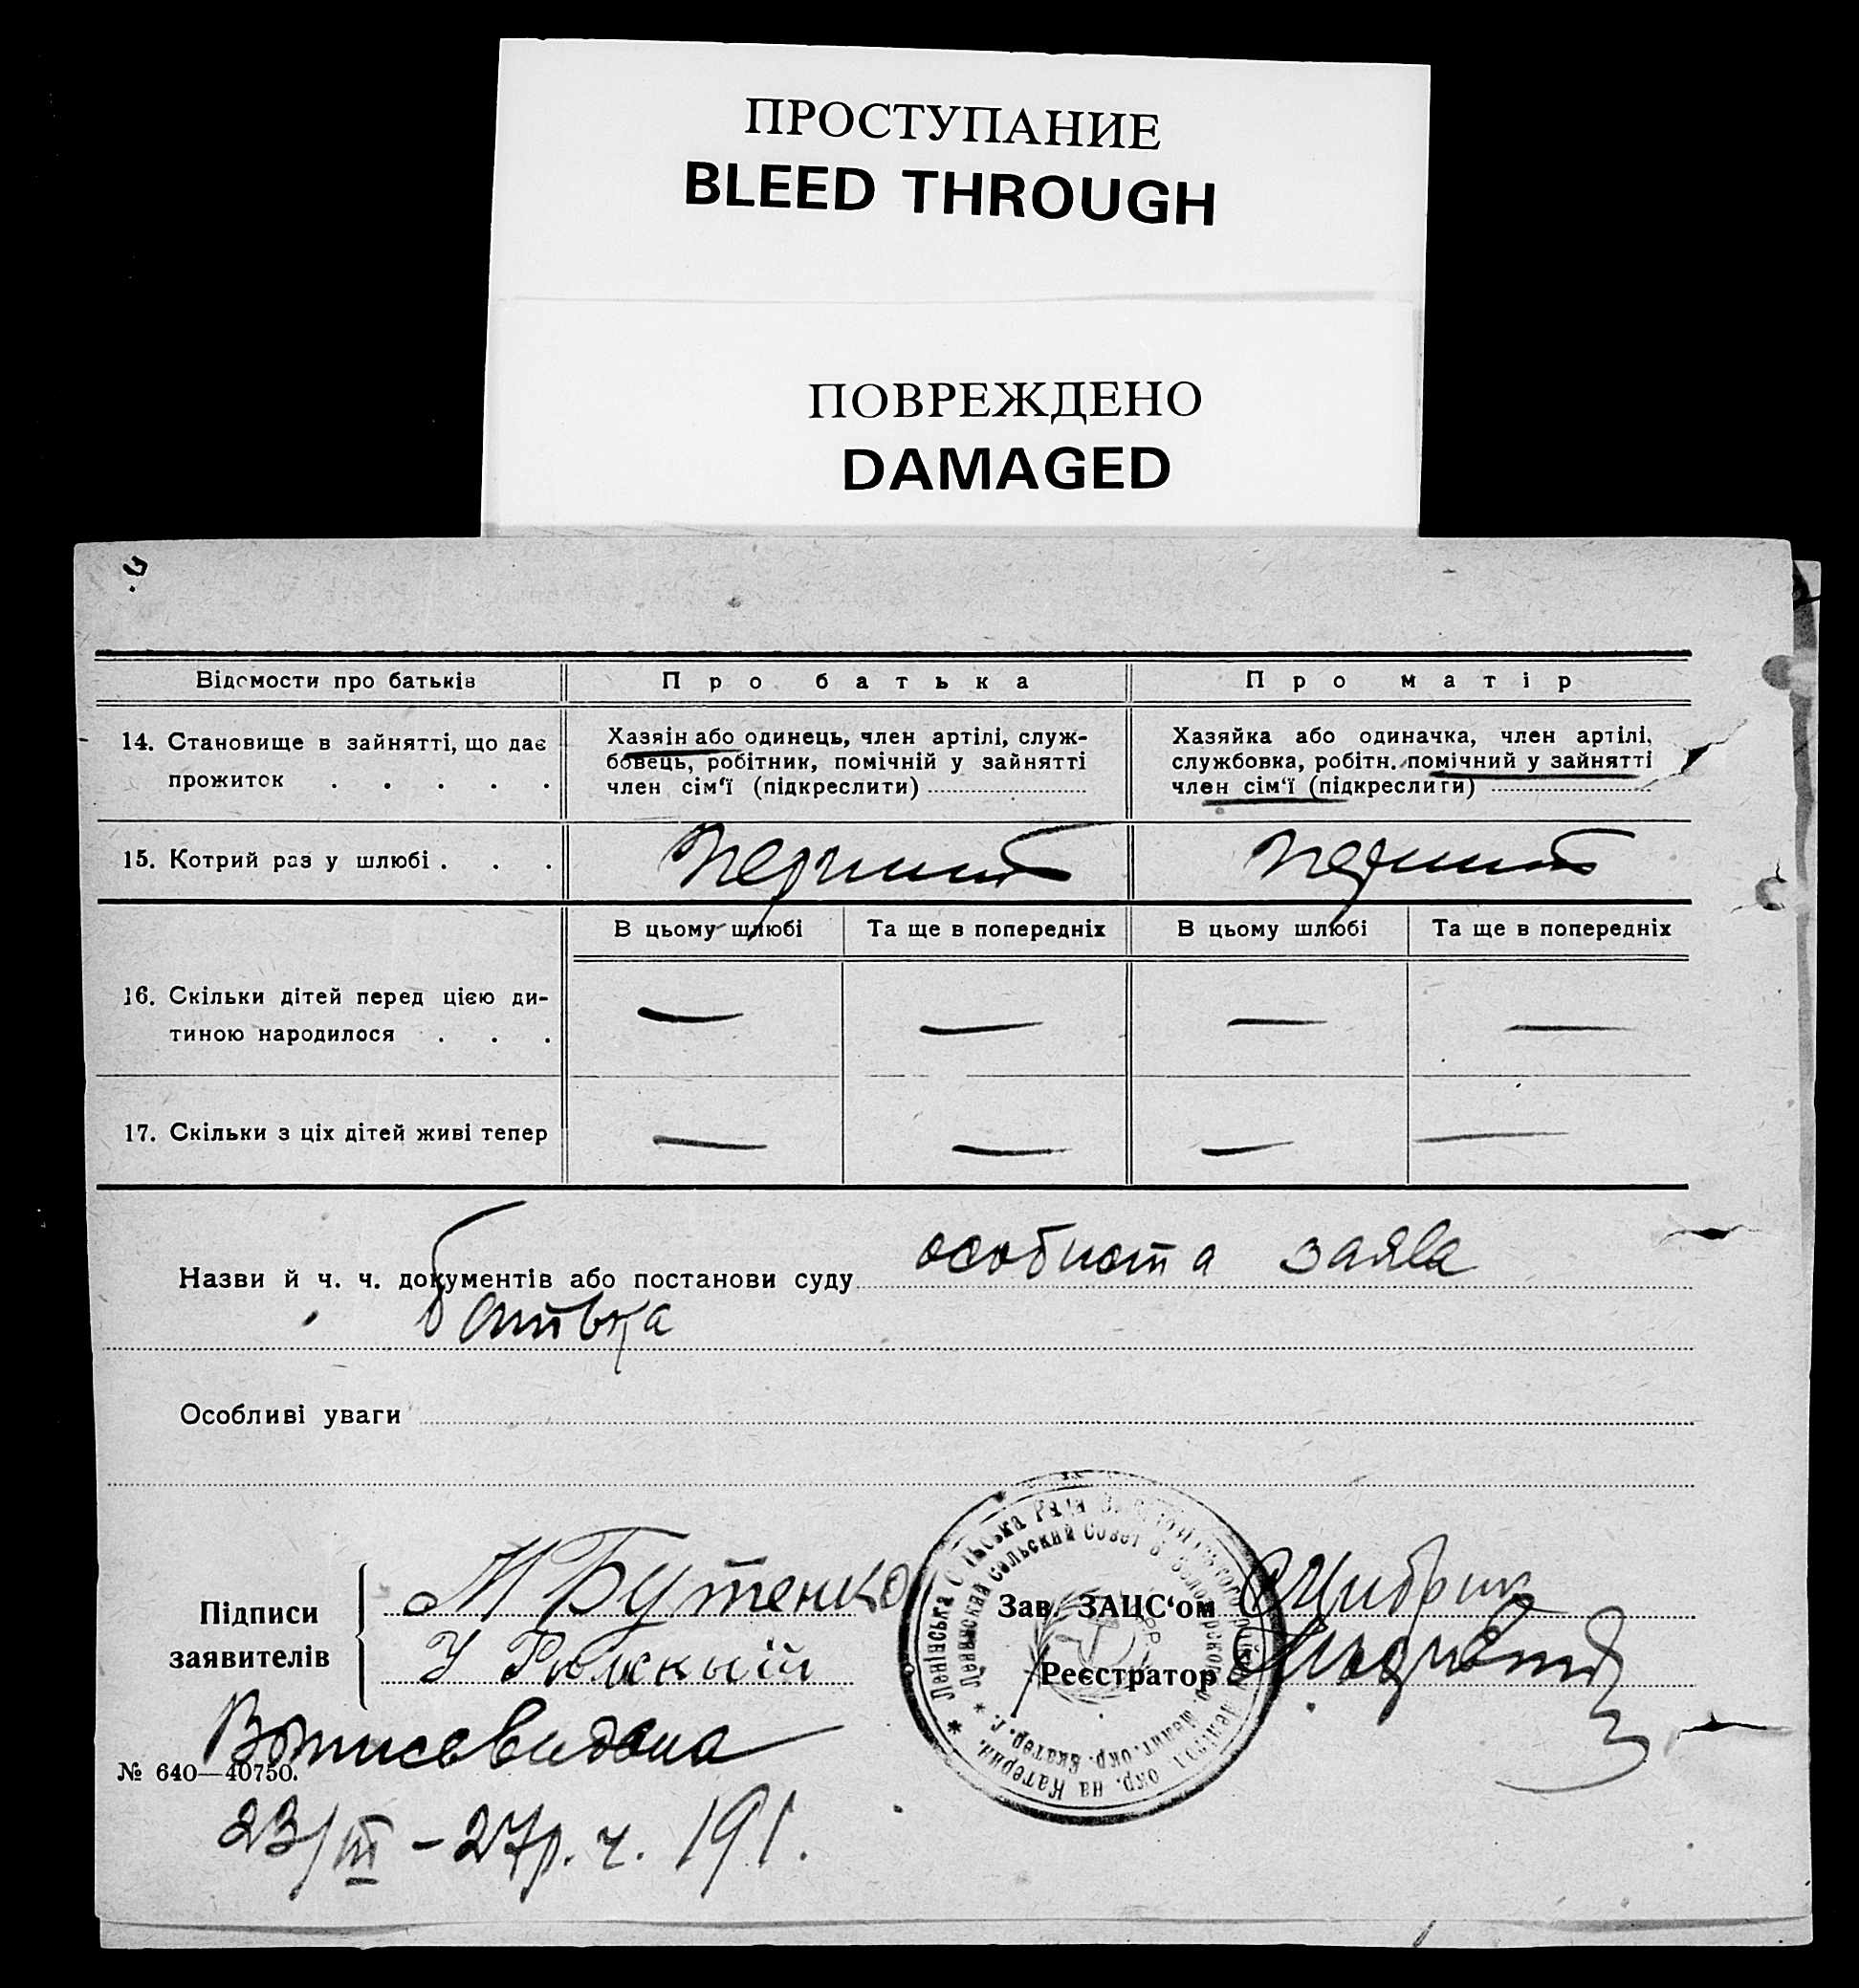 ПРОСТУПАНИЕ
BLEED THROUGH
ПОВРЕЖДЕНО
DAMAGED
Відомости про батьків
Про батька
Про матір
14. Становище в зайнятті, що дає
прожиток . . . . .
Хазяін або одинець, член артілі, служ-
бовець, робітник, помічній у зайнятті
член сім'ї (підкреслити)
Хазяйка або одиначка, член артілі,
службовка, робітн. помічний у зайнятті
член сім'ї (підкреслити)
15. Котрий раз у шлюбі . . .
В цьому шлюбі
Та ще в попередніх
В цьому шлюбі
Та ще в попередніх
16. Скільки дітей перед цією ди-
тиною народилося . . .
— — — —
17. Скільки з ціх дітей живі тепер
— — — —
Назви й ч. ч. документів або постанови суду особиста заява
батька
Особливі уваги
Підписи
заявителів
М Бутенко
У Римский
Зав. ЗАЦС'ом
Реєстратор
Ленінська Сільська Рада
Ленинский сельский Совет
окр. на Катерин.
Мелит. окр. Екатер. г.
Втписовидана
№ 640—40750.
23/III – 27р. ч. 191.